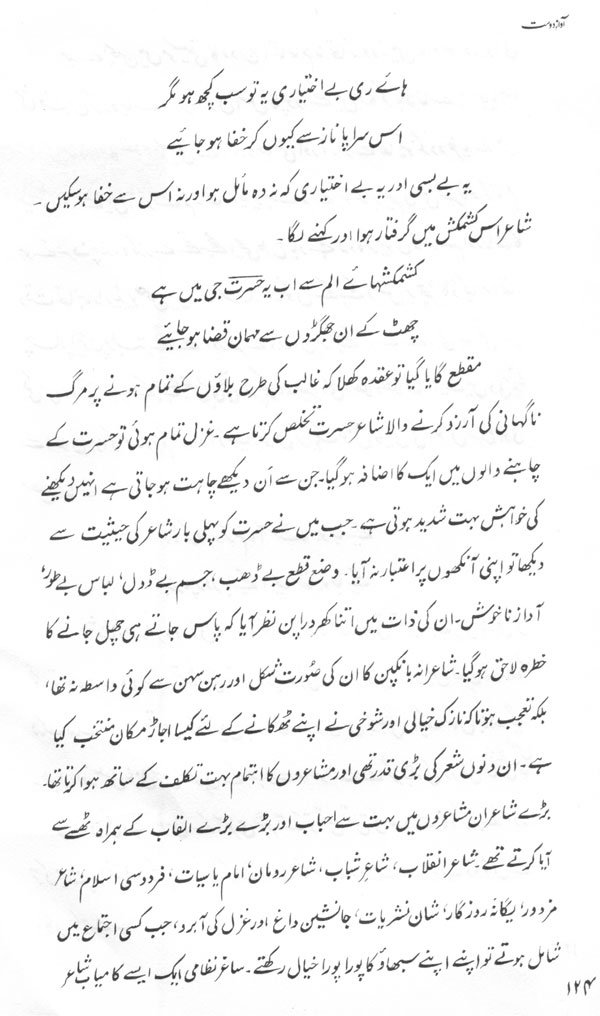 آواز دوست
ہائے ری بے اختیاری یہ تو سب کچھ ہو مگر
اس سراپا ناز سے کیوں کر خفا ہو جائیے
یہ بے بسی اور یہ بے اختیاری کہ نہ وہ مائل ہو اور نہ اس سے خفا ہو سکیں ۔
شاعر اس کشمکش میں گرفتار ہوا اور کہنے لگا ۔
کشمکشہائے الم سے اب یہ حسرت جی میں ہے
چھٹ کے ان جھگڑوں سے مہمان قضا ہو جائیے
مقطع گایا گیا تو عقدہ کھلا کہ غالب کی طرح بلاؤں کے تمام ہونے پر مرگ
ناگہانی کی آرزو کرنے والا شاعر حسرت تخلص کرتا ہے ۔ غزل تمام ہوئی تو حسرت کے
چاہنے والوں میں ایک کا اضافہ ہو گیا ۔ جن سے اَن دیکھے چاہت ہو جاتی ہے انہیں دیکھنے
کی خواہش بہت شدید ہوتی ہے ۔ جب میں نے حسرت کو پہلی بار شاعر کی حیثیت سے
دیکھا تو اپنی آنکھوں پر اعتبار نہ آیا ۔ وضع قطع بے ڈھب ، جسم بے ڈول ، لباس بے طور ،
آواز ناخوش ۔ ان کی ذات میں اتنا کھردرا پن نظر آیا کہ پاس جاتے ہی چھل جانے کا
خطرہ لاحق ہو گیا ۔ شاعرانہ بانکپن کا ان کی صورت شکل اور رہن سہن سے کوئی واسطہ نہ تھا ،
بلکہ تعجب ہوتا کہ نازک خیالی اور شوخی نے اپنے ٹھکانے کے لئے کیسا اجاڑ مکان منتخب کیا
ہے ۔ ان دنوں شعر کی بڑی قدر تھی اور مشاعروں کا اہتمام بہت تکلف کے ساتھ ہوا کرتا تھا ۔
بڑے شاعر ان مشاعروں میں بہت سے احباب اور بڑے بڑے القاب کے ہمراہ ٹھسے سے
آیا کرتے تھے ۔ شاعر انقلاب ، شاعر شباب ، شاعر رومان ، امام یاسیات ، فردوسی اسلام ، شاعر
مزدور ، یگانۂ روزگار ، شان نشریات ، جانشین داغ اور غزل کی آبرو ، جب کسی اجتماع میں
شامل ہوتے تو اپنے اپنے سبھاؤ کا پورا پورا خیال رکھتے ۔ ساغر نظامی ایک ایسے کامیاب شاعر
۱۲۴